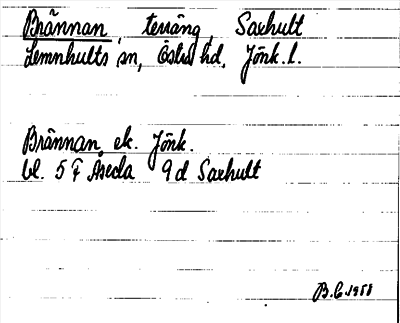 Brännan, terräng, Saxhult
Lemnhults sn, Östra hd, Jönk. l.
Brännan, ek. Jönk.
bl. 5 F Åseda 9 d Saxhult
B.E. 1958